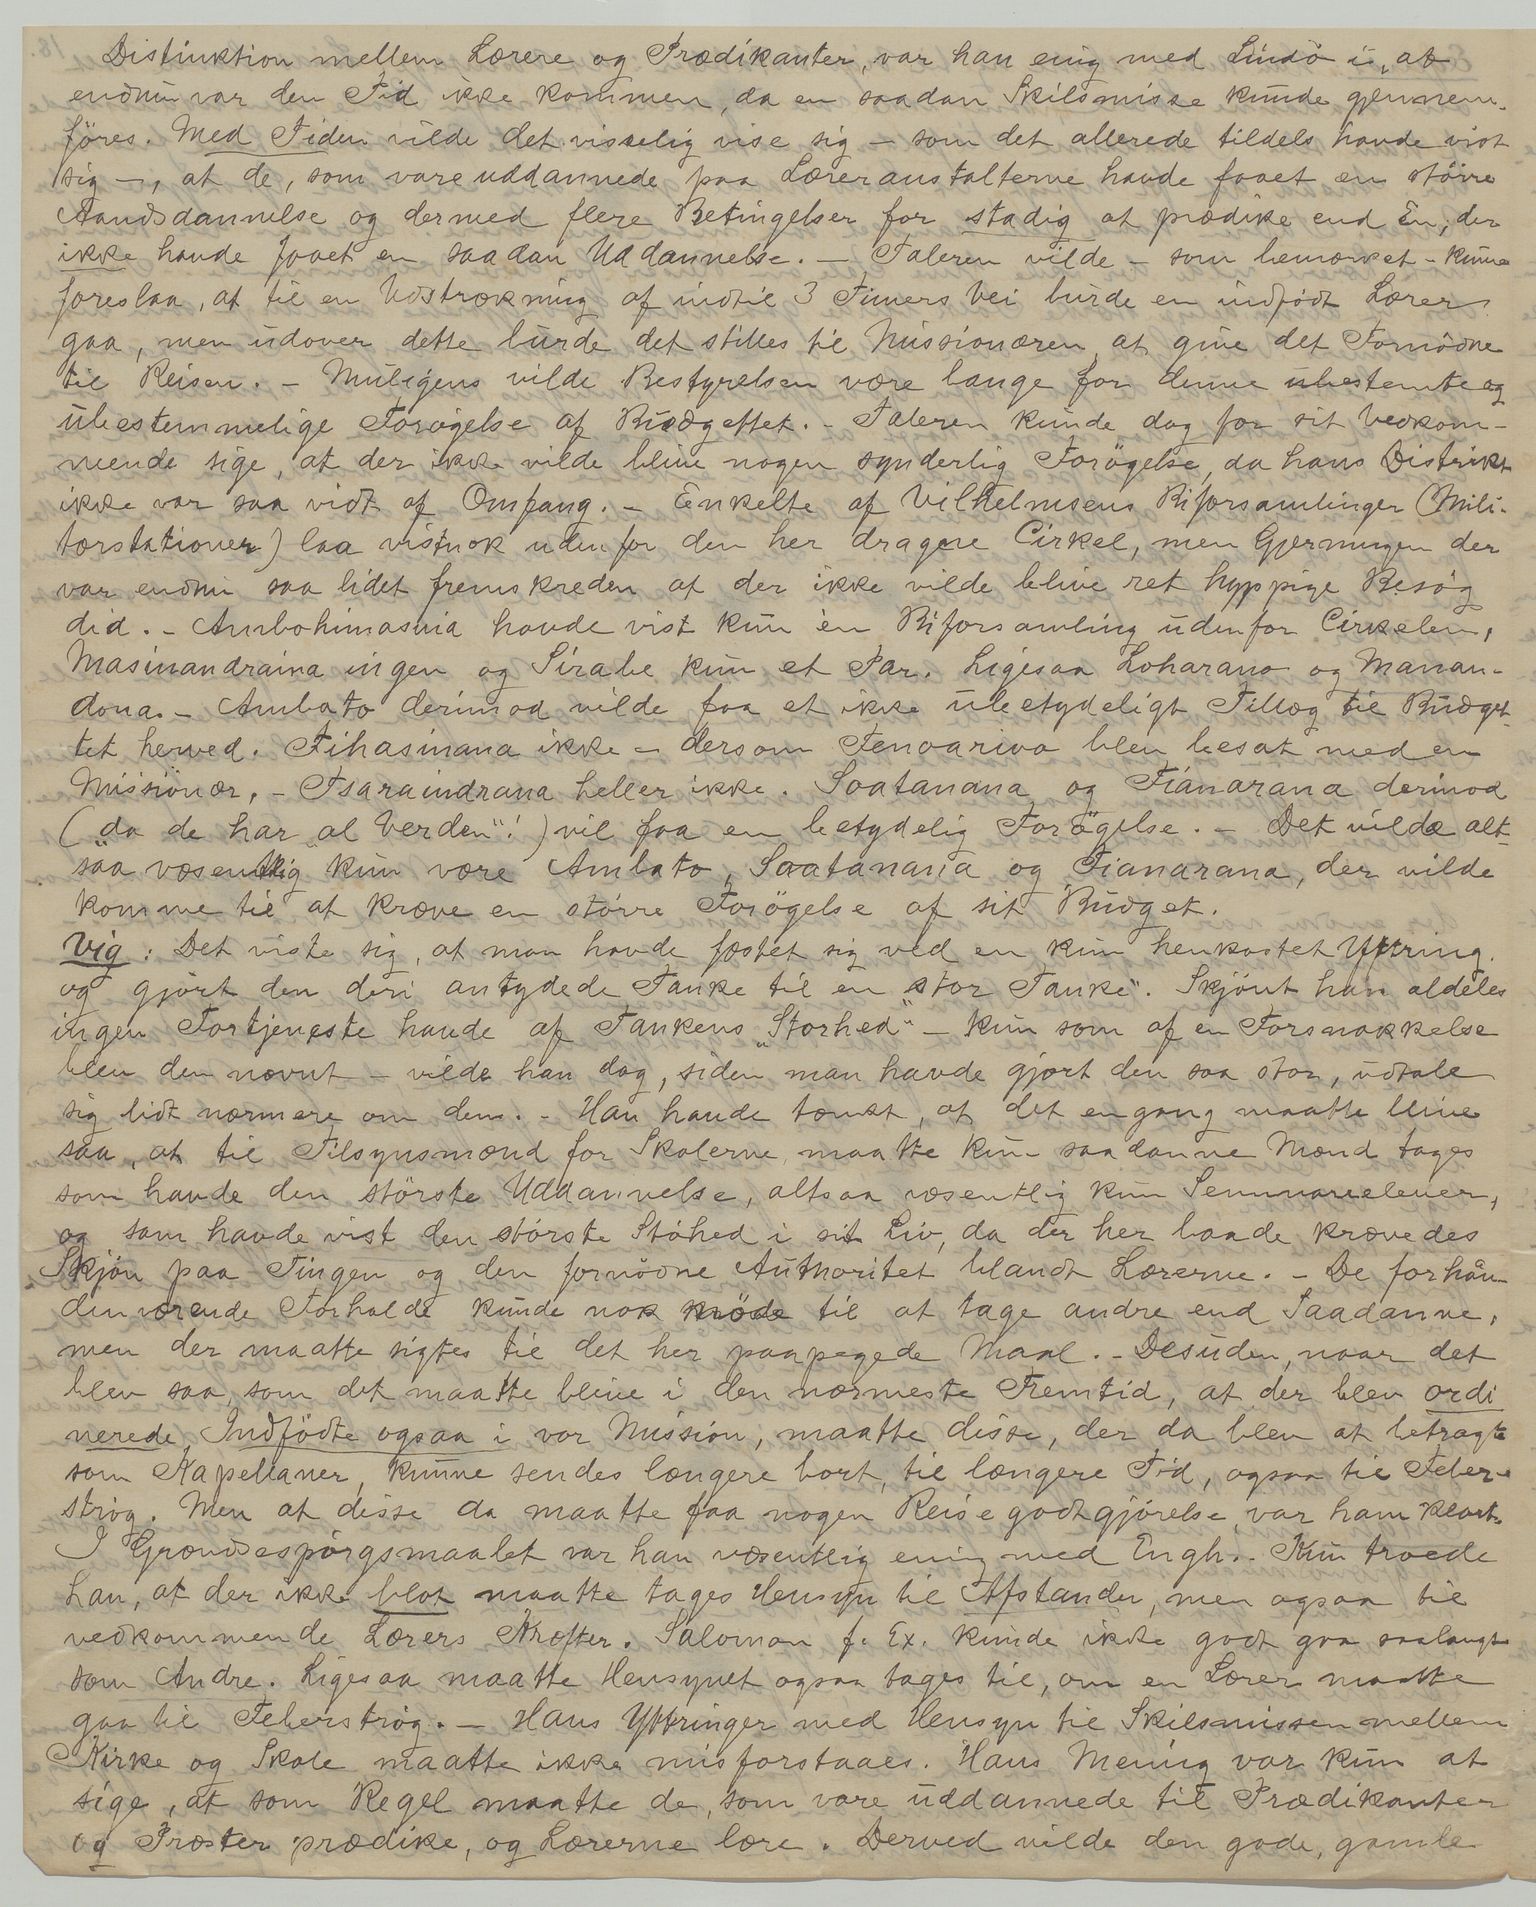 Distinktion mellem Lærere og Prædikanter, var han enig med Lindö i, at
endnu var den Tid ikke kommen, da en saadan Skilsmisse kunde gjennem-
føres. Med Tiden vilde det visselig vise sig – som det allerede tildels havde vist
sig –, at de, som vare uddannede paa Læreranstalterne havde faaet en större
Aandsdannelse og dermed flere Betingelser for stadig at prædike end Èn, der
ikke havde faaet en saadan Uddannelse. – Taleren vilde – som bemærket – kunne
foreslaa, at til en Udstrækning af indtil 3 Timers Vei burde en indfødt Lærer
gaa, men udover dette burde det stilles til Missionæren, at give det Fornödne
til Reisen. – Muligens vilde Bestyrelsen være bange for denne ubestemte og
ubestemmelige Forögelse af Budgettet. – Taleren kunde dog for sit Vedkom-
mende sige, at der ikke vilde blive nogen synderlig Forögelse, da hans Distrikt
ikke var saa vidt af Omfang. – Enkelte af Vilhelmsens Biforsamlinger (Mili-
tærstationer) laa vistnok udenfor den her dragne Cirkel, men Gjerningen der
var endnu saa lidet fremskreden at der ikke vilde blive ret hyppige Besög
did. – Ambohimasina havde vist kun èn Biforsamling udenfor Cirkelen,
Masinandraina ingen og Sirabe kun et Par. Ligesaa Loharano og Manan-
dona. – Ambato derimod vilde faa et ikke ubetydeligt Tillæg til Budget-
tet herved. Fihasinana ikke – dersom Fenoarivo blev besat med en
Missionær. – Tsaraindrana heller ikke. Soatanana og Fianarana derimod
("da de har al Verden"!) vil faa en betydelig Forögelse. – Det vilde alt-
saa væsentlig kun være Ambato, Soatanana og Fianarana, der vilde
komme til at kræve en större Forögelse af sit Budget.
Vig: Det viste sig, at man havde fæstet sig ved en kun henkastet Yttring
og gjort den deri antydede Tanke til en "stor Tanke". Skjönt han aldeles
ingen Fortjeneste havde af Tankens "Storhed" – kun som af en Forsnakkelse
blev den nævnt – vilde han dog, siden man havde gjort den saa stor, udtale
sig lidt nærmere om den. – Han havde tænkt, at det engang maatte blive
saa, at til Tilsynsmænd for Skolerne maatte kun saadanne Mænd tages
som havde den störste Uddannelse, altsaa væsentlig kun Seminarielever,
og som havde vist den störste Støhed i sit Liv, da der her baade krævedes
Skjön paa Tingen og den fornödne Authoritet blandt Lærerne. – De forhaan-
denværende Forholde kunde nok nöde til at tage andre end Saadanne,
men der maatte sigtes til det her paapegede Maal. – Desuden, naar det
blev saa, som det maatte blive i den nærmeste Fremtid, at der blev ordi
nerede Indfödte ogsaa i vor Mission, maatte disse, der da blev at betragte
som Kapellaner, kunne sendes længere bort, til længere Tid, ogsaa til Feber-
strög. Men at disse da maatte faa nogen Reisegodtgjörelse, var ham klart.
I Grændsespörgsmaalet var han væsentlig enig med Engh. – Kun troede
han, at der ikke blot maatte tages Hensyn til Afstanden, men ogsaa til
vedkommende Lærers Kræfter. Salomon f. Ex. kunde ikke godt gaa saalangt
som Andre. Ligesaa maatte Hensynet ogsaa tages til, om en Lærer maatte
gaa til Feberströg. – Hans Yttringer med Hensyn til Skilsmissen mellem
Kirke og Skole maatte ikke misforstaaes. Hans Mening var kun at
sige, at som Regel maatte de, som vare uddannede til Prædikanter
og Præster prædike, og Lærerne lære. Derved vilde den gode, gamle